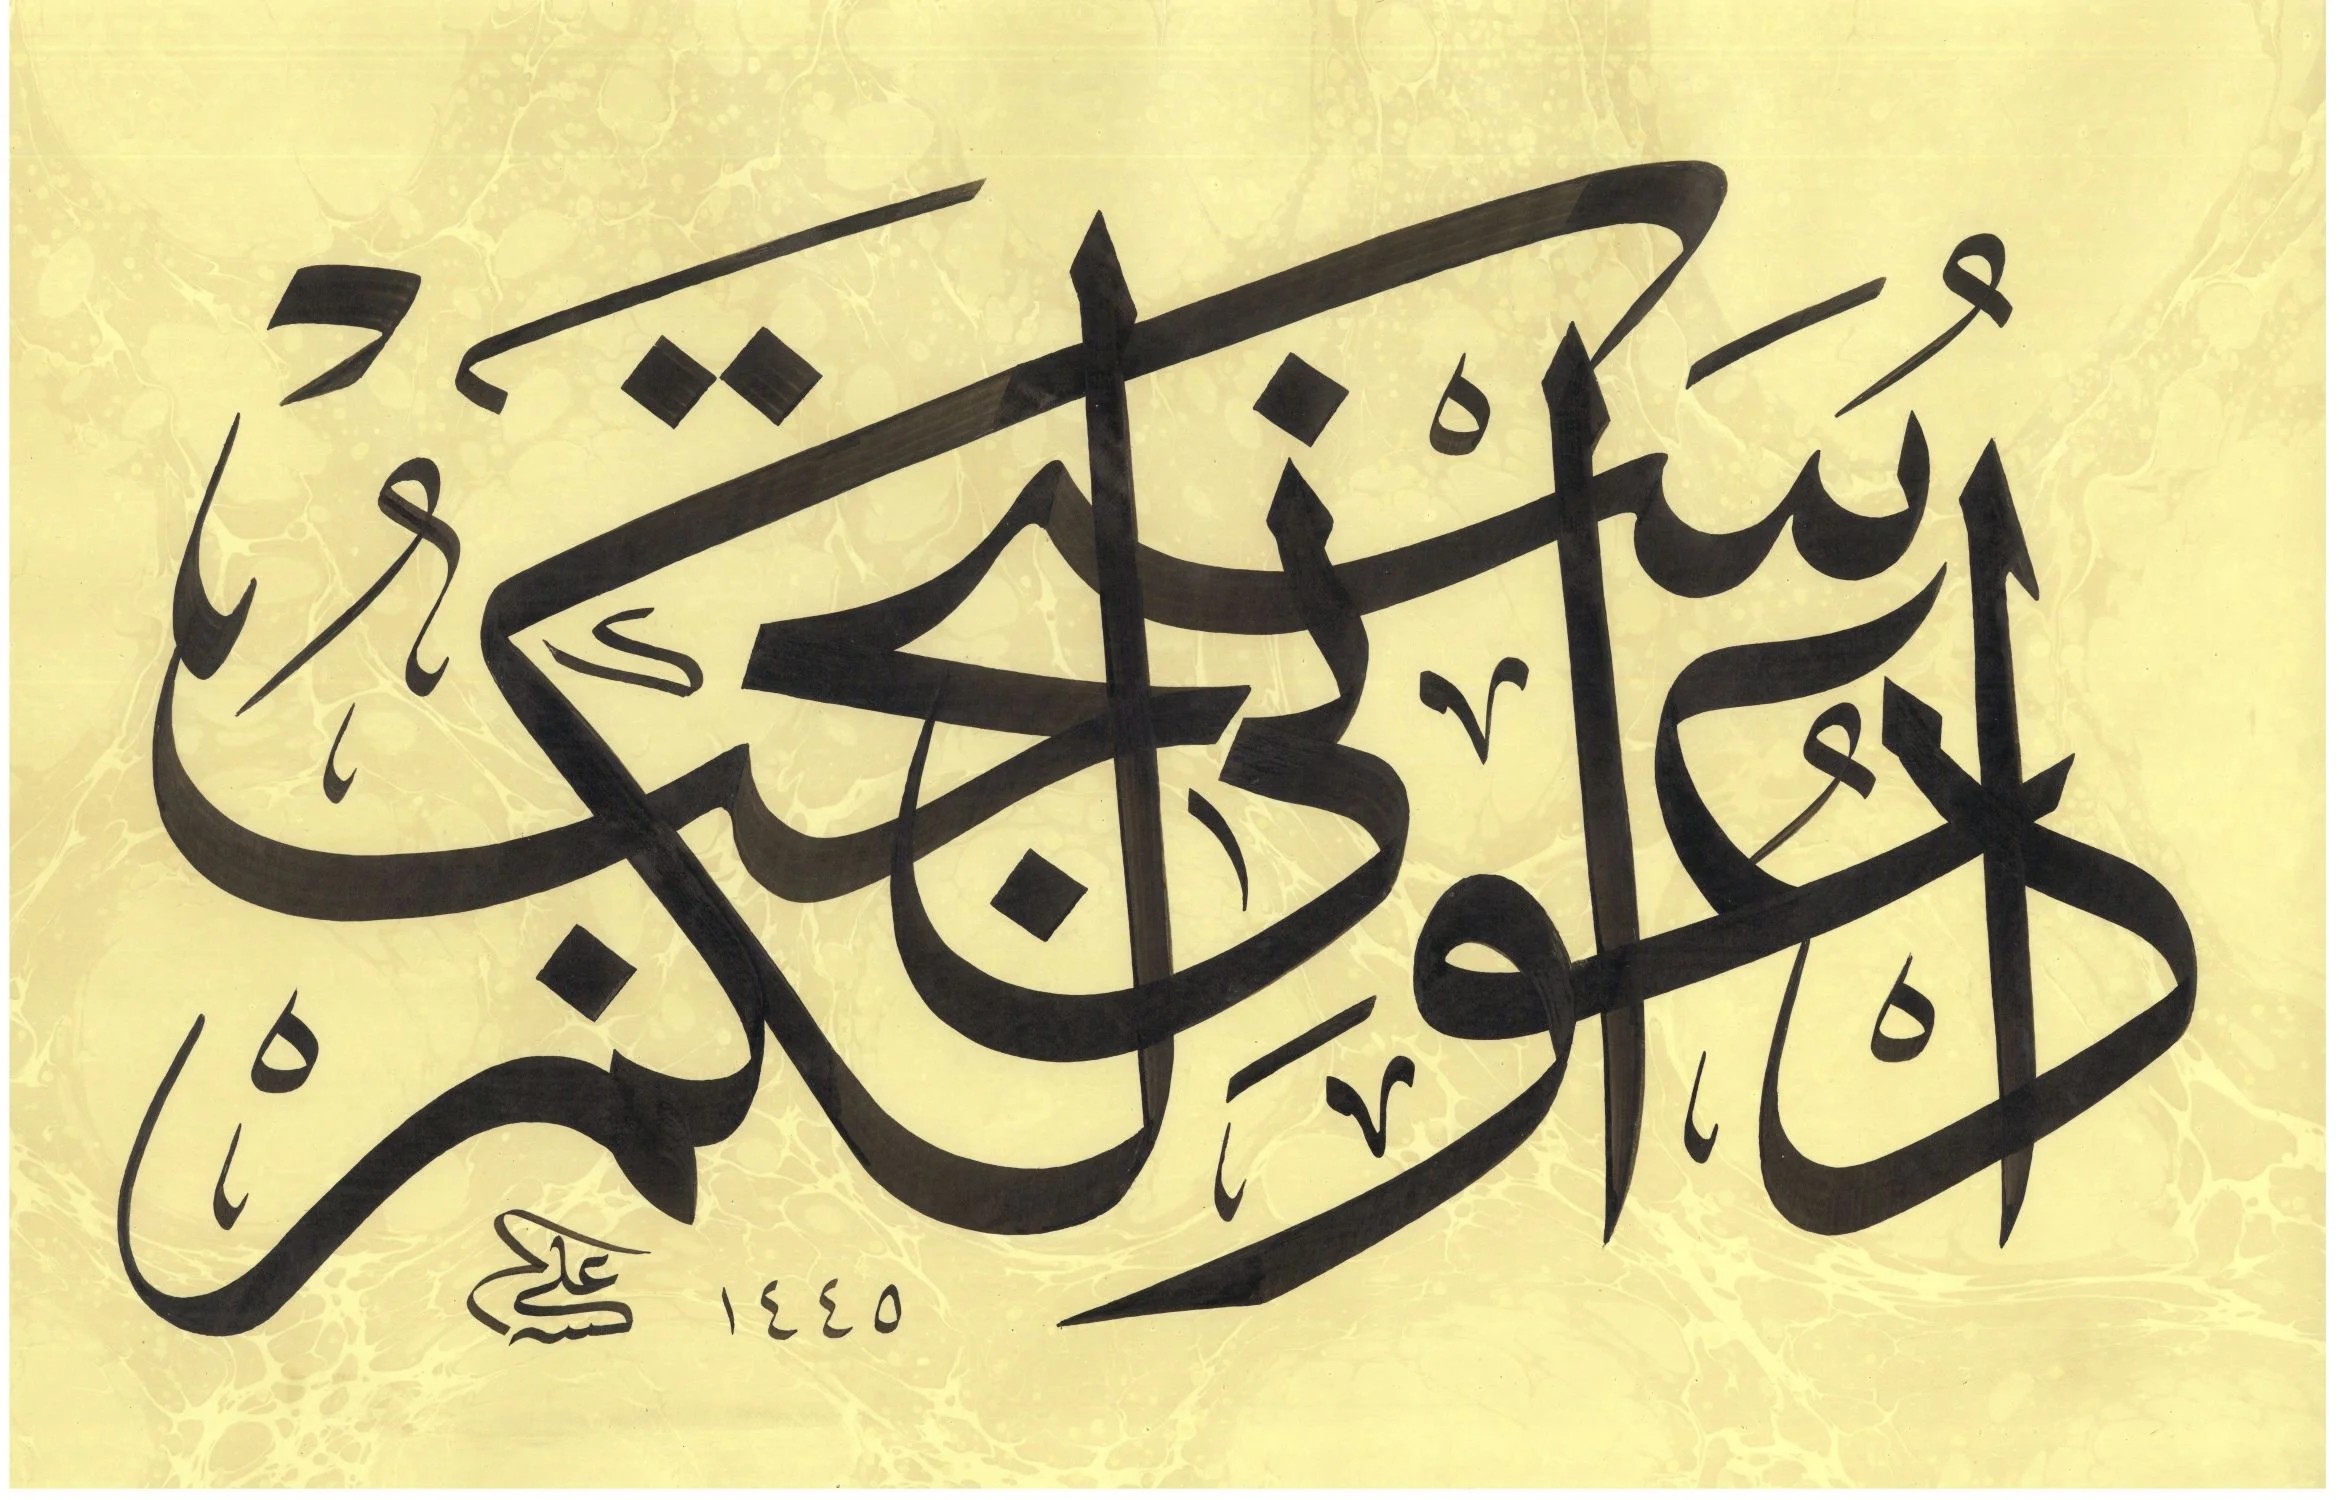 ادْعُونِي أَسْتَجِبْ لَكُمْ
علي
١٤٤٥